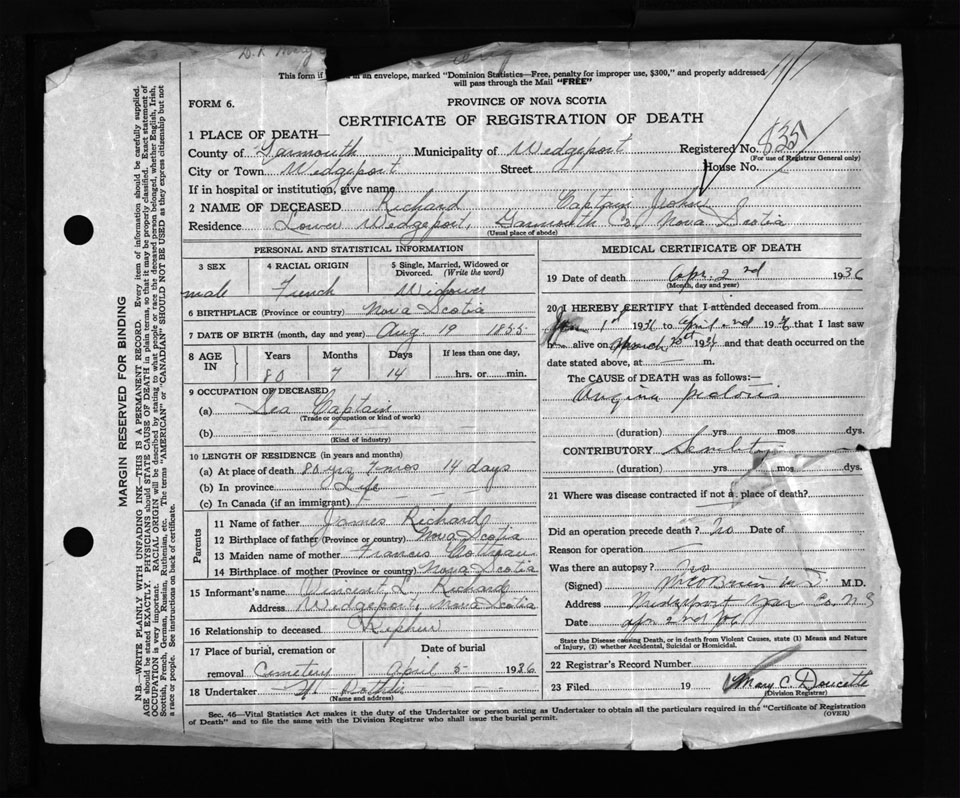 This form if in an envelope, marked "Dominion Statistics—Free, penalty for improper use, $300," and properly addressed
will pass through the Mail "FREE"
FORM 6.
PROVINCE OF NOVA SCOTIA
CERTIFICATE OF REGISTRATION OF DEATH
1 PLACE OF DEATH—
County of Yarmouth Municipality of Wedgeport Registered No. 835
(For use of Registrar General only)
City or Town Wedgeport Street House No.
If in hospital or institution, give name
2 NAME OF DECEASED Richard Captain John
Residence Lower Wedgeport, Yarmouth Co, Nova Scotia
(Usual place of abode)
PERSONAL AND STATISTICAL INFORMATION
3 SEX 4 RACIAL ORIGIN 5 Single, Married, Widowed or Divorced. (Write the word)
male French Widower
6 BIRTHPLACE (Province or country) Nova Scotia
7 DATE OF BIRTH (month, day and year) Aug. 19 1855
8 AGE IN Years Months Days If less than one day,
80 7 14 hrs. or min.
9 OCCUPATION OF DECEASED
(a) Sea Captain
(Trade or occupation or kind of work)
(b)
(Kind of industry)
10 LENGTH OF RESIDENCE (in years and months)
(a) At place of death 80 yrs 7 mos 14 days
(b) In province Life
(c) In Canada (if an immigrant)
Parents
11 Name of father James Richard
12 Birthplace of father (Province or country) Nova Scotia
13 Maiden name of mother Frances Cottreau
14 Birthplace of mother (Province or country) Nova Scotia
15 Informant's name Vincent L. Richard
Address Wedgeport, Nova Scotia
16 Relationship to deceased Nephew
17 Place of burial, cremation or removal Cemetery Date of burial April 5 1936
18 Undertaker
(Name and address)
MEDICAL CERTIFICATE OF DEATH
19 Date of death Apr. 2nd 1936
(Month, day and year)
20 I HEREBY CERTIFY that I attended deceased from
Jan 1st 1936 to April 2nd 1936 that I last saw
h alive on March 1936 and that death occurred on the
date stated above, at m.
The CAUSE OF DEATH was as follows:—
Angina pectoris
(duration) yrs. mos. dys.
CONTRIBUTORY Senility
(duration) yrs. mos. dys.
21 Where was disease contracted if not a place of death?
Did an operation precede death? No Date of
Reason for operation
Was there an autopsy? No
(Signed) M.D. M.D.
Address Yar. Co. N.S.
Date Apr 2nd
State the Disease causing Death, or in death from Violent Causes, state (1) Means and Nature of Injury, (2) whether Accidental, Suicidal or Homicidal.
22 Registrar's Record Number
23 Filed 19 Mary C. Doucette
(Division Registrar)
Sec. 46—Vital Statistics Act makes it the duty of the Undertaker or person acting as Undertaker to obtain all the particulars required in the "Certificate of Registration
of Death" and to file the same with the Division Registrar who shall issue the burial permit.
(OVER)
MARGIN RESERVED FOR BINDING
N.B.—WRITE PLAINLY WITH UNFADING INK—THIS IS A PERMANENT RECORD. Every item of information should be carefully supplied.
AGE should be stated EXACTLY. PHYSICIANS should STATE CAUSE OF DEATH in plain terms, so that it may be properly classified. Exact statement of
OCCUPATION is very important. RACIAL ORIGIN will be described by stating to what people or race the deceased person belonged, whether English, Irish,
Scottish, French, German, Russian, Ruthenian, etc. The terms "AMERICAN" or "CANADIAN" SHOULD NOT BE USED as they express citizenship but not
a race or people. See instructions on back of certificate.